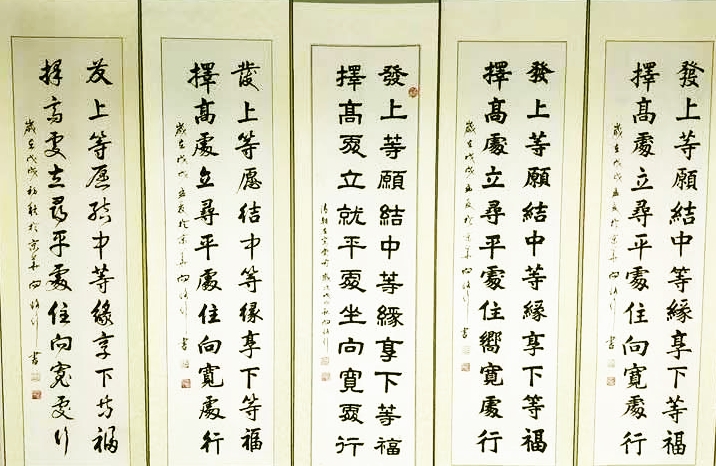 發上等願結中等緣享下等福
擇髙處立尋平處住向寬處行
歲在戊戌於京華書
發上等願結中等緣享下等福
擇髙處立尋平處住嚮寬處行
歲在戊戌於京華書
發上等願結中等緣享下等福
擇髙處立就平處坐向寬處行
發上等愿结中等缘享下等福
擇髙處立尋平處住向寬處行
歲在戊戌於京華書
发上等愿结中等缘享下等福
择高处立尋平處住向宽处行
歲在戊戌初秋於京華書